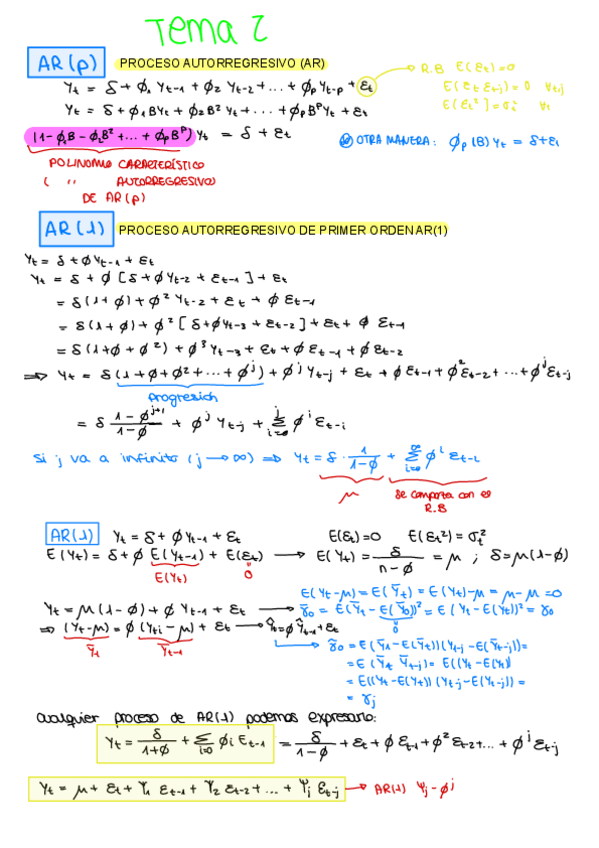 Tema 2
AR(p) PROCESO AUTORREGRESIVO (AR)
Yt = δ + ϕ1 Yt-1 + ϕ2 Yt-2 + ... + ϕp Yt-p + εt → R.B E(εt)=0
E(εt εt-j) = 0 ∀t,j
E(εt²) = σε² ∀t
Yt = δ + ϕ1BYt + ϕ2B²Yt + ... + ϕpB^pYt + εt
(1-ϕ1B-ϕ2B²+...+ϕpB^p) Yt = δ + εt
OTRA MANERA: ϕp(B)Yt = δ+εt
POLINOMIO CARACTERÍSTICO
( " AUTORREGRESIVO)
DE AR(p)
AR(1) PROCESO AUTORREGRESIVO DE PRIMER ORDEN AR(1)
Yt = δ + ϕYt-1 + εt
Yt = δ + ϕ [δ+ϕYt-2 + εt-1] + εt
= δ(1+ϕ) + ϕ² Yt-2 + εt + ϕ εt-1
= δ(1+ϕ) + ϕ² [δ+ϕYt-3 + εt-2] + εt + ϕ εt-1
= δ(1+ϕ+ϕ²) + ϕ³ Yt-3 + εt + ϕεt-1 + ϕεt-2
⇒ Yt = δ(1+ϕ+ϕ²+...+ϕ^j) + ϕ^j Yt-j + εt + ϕεt-1 + ϕ²εt-2 + ... + ϕ^jεt-j
progresión
= δ (1-ϕ^j+1)/(1-ϕ) + ϕ^j Yt-j + Σ_{i=0}^{j} ϕ^i εt-i
Si j va a infinito (j → ∞) ⇒ Yt = δ · 1/(1-ϕ) + Σ_{i=0}^{∞} ϕ^i εt-i
μ se comporta con el
R.B
AR(1) Yt = δ + ϕYt-1 + εt E(εt)=0 E(εt²) = σε²
E(Yt) = δ + ϕ E(Yt-1) + E(εt) → E(Yt) = δ/(n-ϕ) = μ ; δ=μ(1-ϕ)
E(Yt) 0
E(Yt-μ) = E(Ỹt) = E(Yt)-μ = μ-μ = 0
Yt = μ(1-ϕ) + ϕ Yt-1 + εt → γ̃0 = E(Ỹt - E(Ỹt))² = E(Yt-E(Yt))² = γ0
0
⇒ (Yt-μ) = ϕ(Yt-1-μ) + εt → Ỹt=ϕỸt-1+εt
Ỹt Ỹt-1
γ̃0 = E(Ỹt-E(Ỹt))(Yt-j-E(Ỹt-j)) =
= E(Ỹt Ỹt-j) = E((Yt-E(Yt)
= E((Yt-E(Yt))(Yt-j-E(Yt-j)) =
= γj
cualquier proceso de AR(1) podemos expresarlo:
Yt = δ/(1+ϕ) + Σ_{i=0} ϕi Et-1 = δ/(1-ϕ) + εt + ϕ εt-1 + ϕ² εt-2 + ... + ϕ^j εt-j
Yt = μ + εt + Ψ1 εt-1 + Ψ2 εt-2 + ... + Ψj εt-j → AR(1) Ψj - ϕ^j